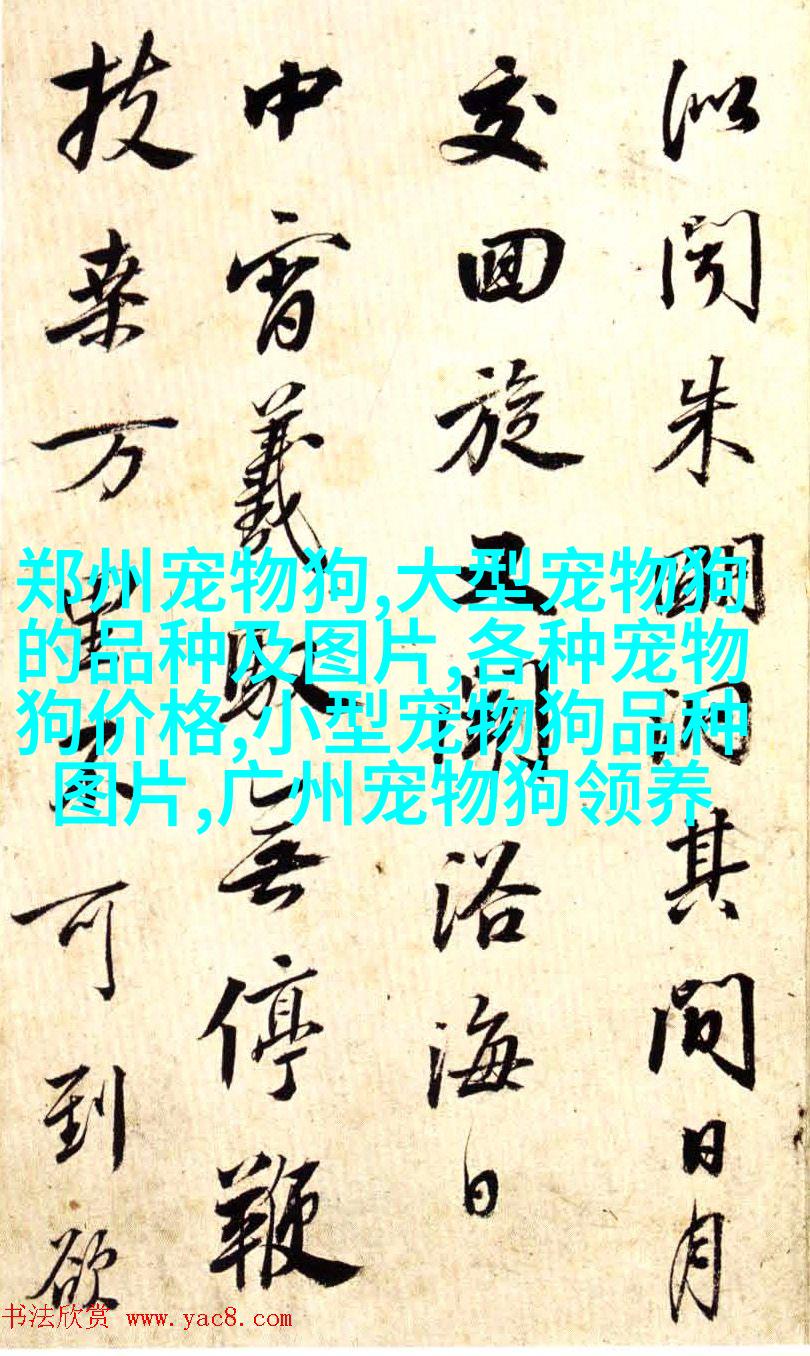 似聞朱明洞其間日月
交回旋五浴海日
中宵羲馭無停鞭
扶桒万里不可到欲
郑州宠物狗,大型宠物狗
的品种及图片,各种宠物
狗价格,小型宠物狗品种
图片,广州宠物狗领养
书法欣赏 www.yac8.com